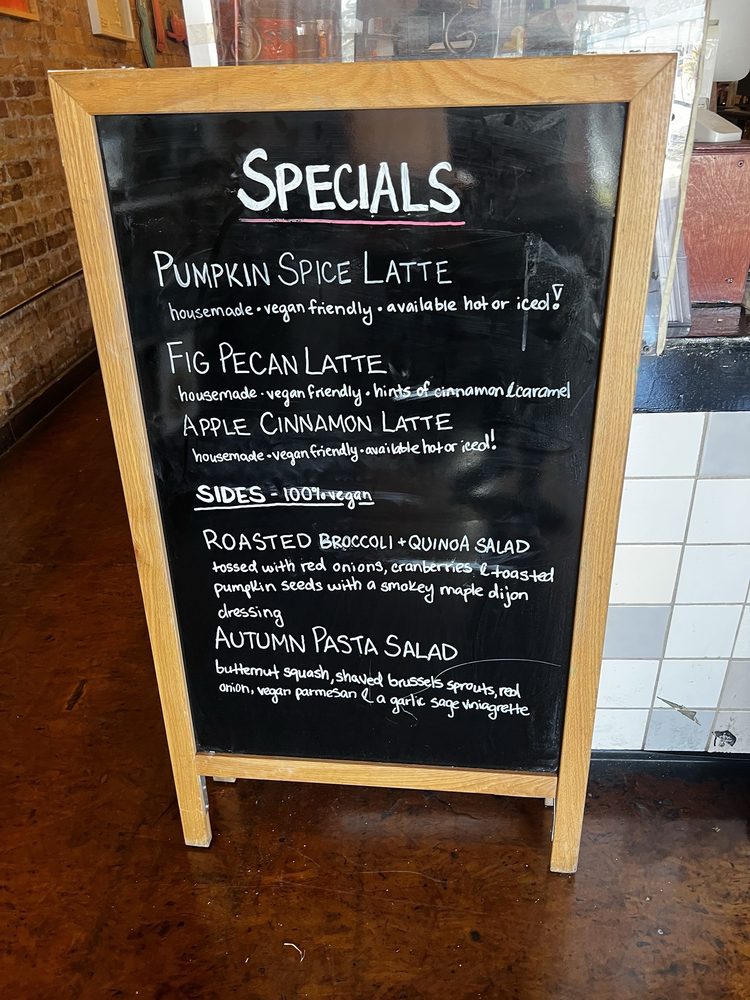 SPECIALS
PUMPKIN SPICE LATTE
housemade • vegan friendly • available hot or iced!
FIG PECAN LATTE
housemade • vegan friendly • hints of cinnamon & caramel
APPLE CINNAMON LATTE
housemade • vegan friendly • available hot or iced!
SIDES - 100% vegan
ROASTED BROCCOLI + QUINOA SALAD
tossed with red onions, cranberries & toasted
pumpkin seeds with a smokey maple dijon
dressing
AUTUMN PASTA SALAD
butternut squash, shaved brussels sprouts, red
onion, vegan parmesan & a garlic sage viniagrette